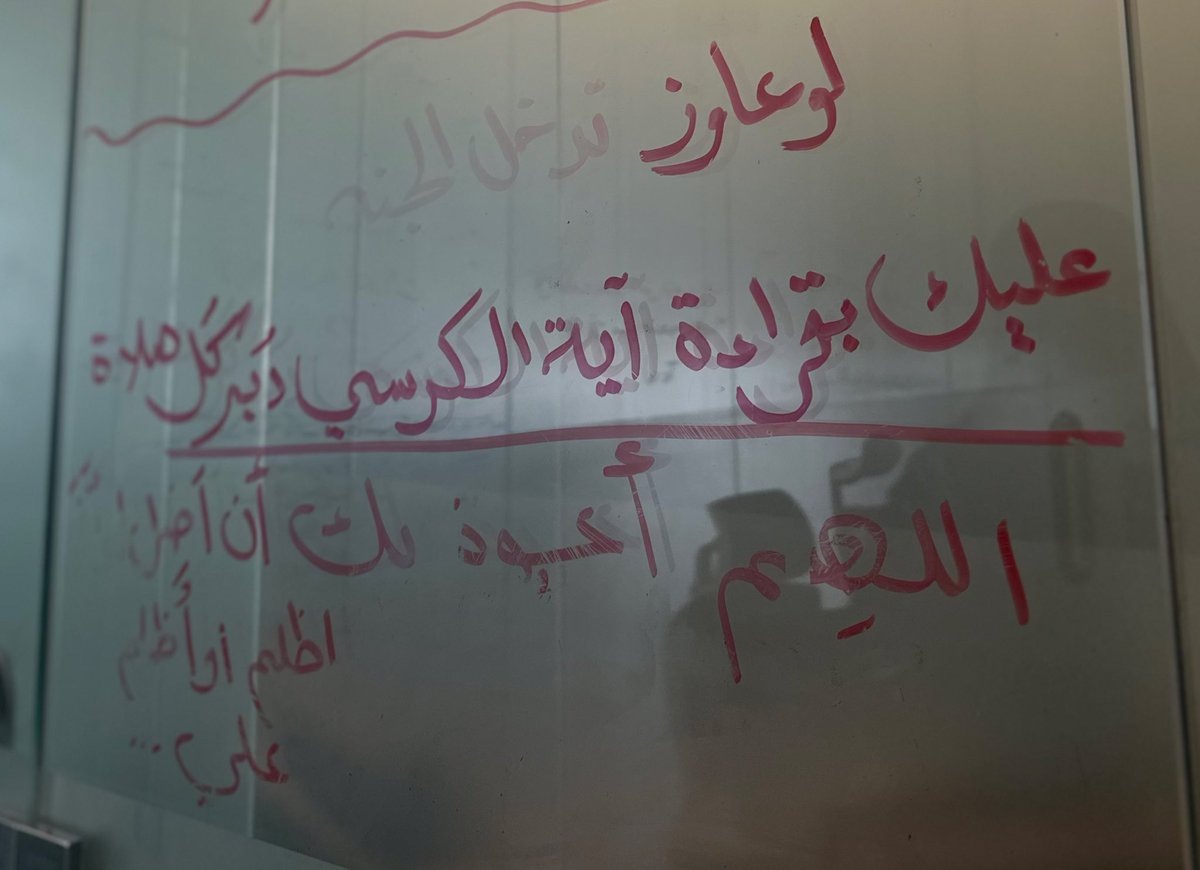 لو عاوز تدخل الجنه
عليك بقراءة آية الكرسي دَبر كَل صلاة
اللهِم أعوذ بك أَن أَضل أ
اظلم أو أَظلم
علي ...